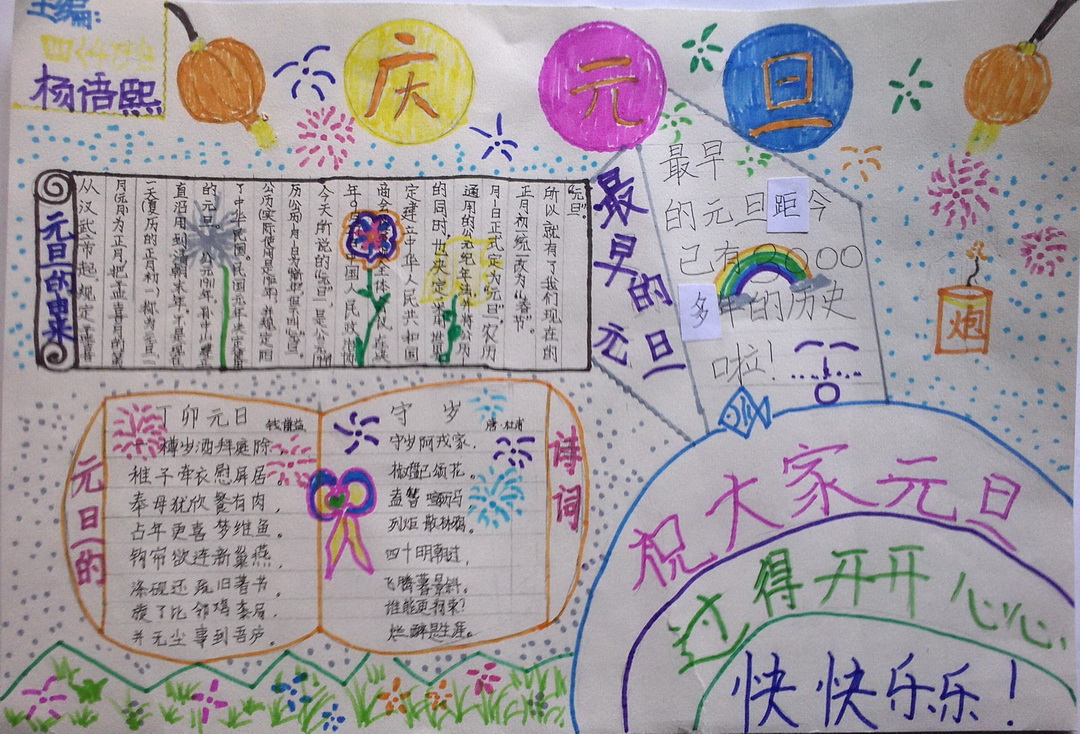 主编:
杨语熙
庆 元 旦
元旦的由来
从汉武帝起规定孟喜
月(元月)为正月,把孟喜月的第
一天(夏历的正月初一)称为元旦,一
直沿用到清朝末年。
的元旦。公元1911年,孙中山
了中华民国,民国元年决定
公历(实际使用是1912年),并规定阳
历(公历)1月1日为"新年",但不叫"元旦"。
今天所说的"元旦"是公元
年9月 中国人民政治协
商会 全体会议在决
定建立中华人民共和国
的同时,也决定采用世界
通用的公元纪年法,并将公历
一月1日正式定为"元旦",农历
正月初一改为"春节"
所以就有了我们现在的
"元旦"。
最早的元旦
最早
的元旦距今
已有20000
多年的历史
啦!
炮
元旦的
诗词
丁卯元日
钱谦益
樽岁酒拜庭除,
稚子牵衣慰屏居。
奉母犹欣餐有肉,
占年更喜梦维鱼。
钩帘欲连新巢燕,
涤砚还疏旧著书。
比邻
并无尘事到吾庐。
守 岁
唐·杜甫
守岁阿戎家,
椒盘已颂花。
盍簪喧枥马
列炬散林鸦。
四十明朝过,
飞腾暮景斜。
谁能更拘束?
烂醉是生涯。
祝大家元旦
过得开开心心,
快快乐乐!